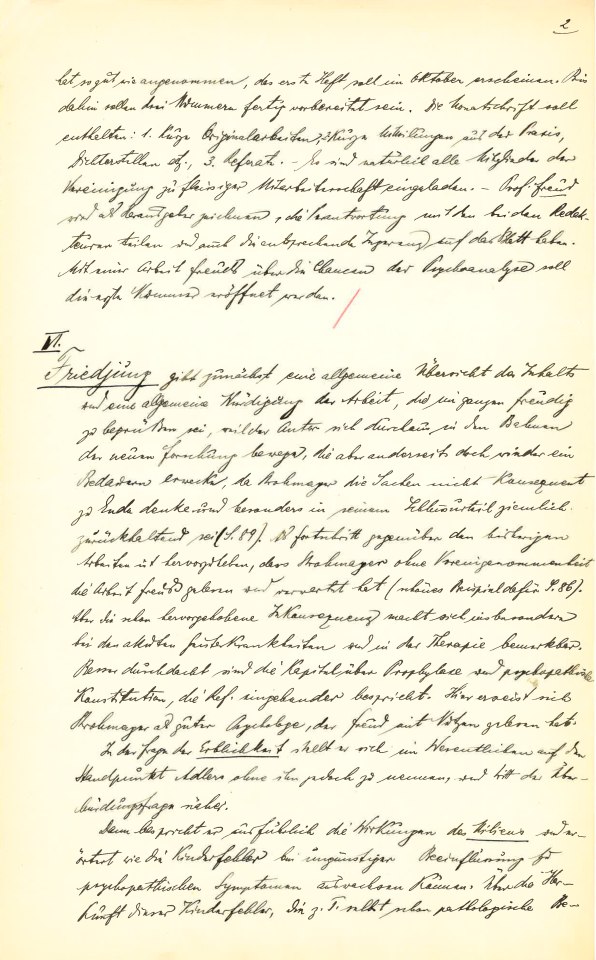 2
hat so gut wie angenommen, das erste Heft soll im Oktober erscheinen. Bis
dahin sollen drei Nummern fertig vorbereitet sein. Die Monatschrift soll
enthalten: 1. kurze Originalarbeiten, 2. kurze Mitteilungen aus der Praxis,
Dichterstellen etc., 3. Referate. – Es sind natürlich alle Mitglieder der
Vereinigung zu fleissiger Mitarbeiterschaft eingeladen. – Prof. Freud
wird als Herausgeber zeichnen, die Verantwortung mit den beiden Redak-
teuren teilen und auch die entsprechende Ingerenz auf das Blatt haben.
Mit einer Arbeit Freuds über die Chancen der Psychoanalyse soll
die erste Nummer eröffnet werden.
VI.
Friedjung gibt zunächst eine allgemeine Übersicht des Inhalts
und eine allgemeine Würdigung der Arbeit, die im ganzen freudig
zu begrüßen sei, weil der Autor sich durchaus in den Bahnen
der neuen Forschung bewege, die aber anderseits doch wieder ein
Bedauern erwecke, da Strohmayer die Sachen nicht konsequent
zu Ende denke und besonders in seinem Schlussurteil ziemlich
zurückhaltend sei (S. 89). Als Fortschritt gegenüber den bisherigen
Arbeiten ist hervorzuheben, dass Strohmayer ohne Voreingenommenheit
die Arbeit Freuds gelesen und verwertet hat (schönes Beispiel dafür S. 86).
Aber die schon hervorgehobene Inkonsequenz macht sich insbesondere
bei den akuten Geisteskrankheiten und in der Therapie bemerkbar.
Besser durchdacht sind die Kapitel über Prophylaxe und psychopathische
Konstitution, die Ref. eingehender bespricht. Hier erweist sich
Strohmayer als guter Psychologe, der Freud mit Nutzen gelesen hat.
In der Frage der Erblichkeit stellt er sich im Wesentlichen auf den
Standpunkt Adlers ohne ihn jedoch zu nennen, und tritt der Über-
bürdungsfrage näher.
Dann bespricht er ausführlich die Wirkungen des Milieus und er-
örtert wie die Kinderfehler bei ungünstiger Beeinflussung zu
psychopathischen Symptomen auswachsen können. Über die Her-
kunft dieser Kinderfehler, die z. T. selbst schon pathologische Be-